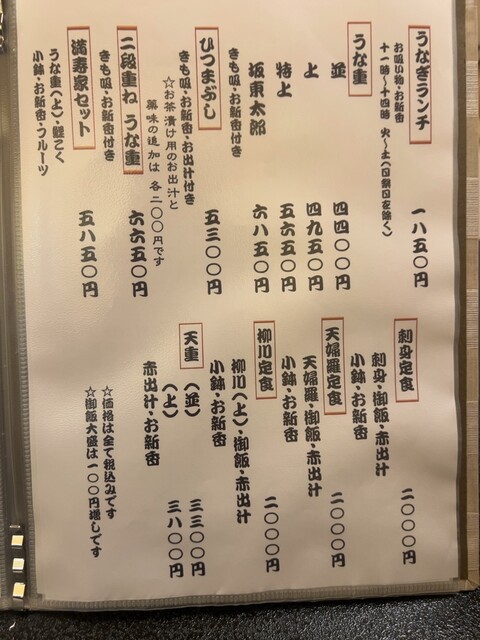 うなぎランチ 一八五〇円
お吸い物・お新香
十一時〜十四時 火〜土(日祭日を除く)
うな重
並 四四〇〇円
上 四九五〇円
特上 五六五〇円
坂東太郎 六八五〇円
きも吸・お新香付き
ひつまぶし 五三〇〇円
きも吸・お新香・お出汁付き
☆お茶漬け用のお出汁と
薬味の追加は 各二〇〇円です
二段重ね うな重 六六五〇円
きも吸・お新香付き
満寿家セット 五八五〇円
うな重(上)・鯉こく
小鉢・お新香・フルーツ
刺身定食 二〇〇〇円
刺身・御飯・赤出汁
小鉢・お新香
天婦羅定食 二〇〇〇円
天婦羅・御飯・赤出汁
小鉢・お新香
柳川定食 二〇〇〇円
柳川(上)・御飯・赤出汁
小鉢・お新香
天重 (並) 三三〇〇円
(上) 三八〇〇円
赤出汁・お新香
☆価格は全て税込みです
☆御飯大盛は一〇〇円増しです